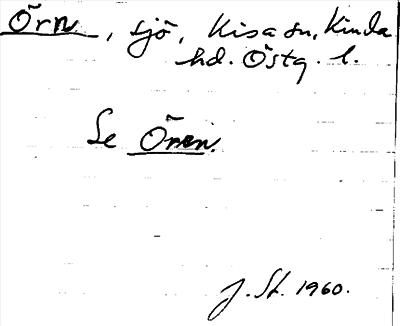 Örn, sjö, Kisa sn, Kinda
hd. Östg. l.
Se Ören.
J. St. 1960.